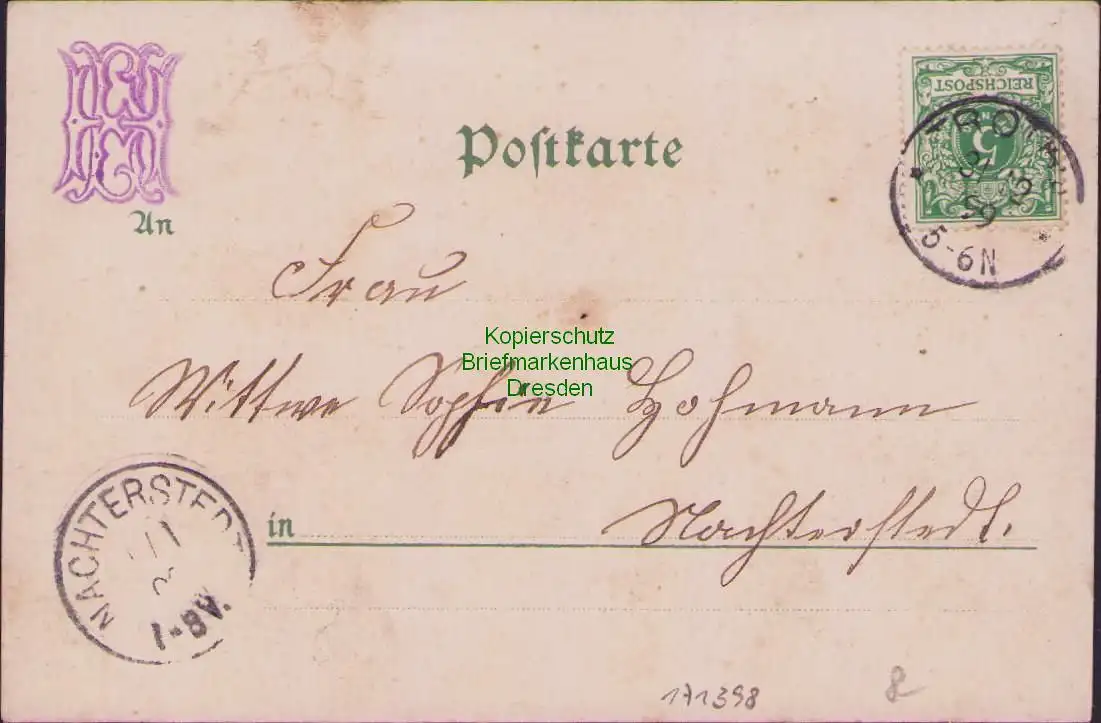 Postkarte
REICHSPOST
5
An
Frau
Kopierschutz
Briefmarkenhaus
Dresden
Wittwe Sophie Hohmann
NACHTERSTEDT
1/1
1-8V.
in Nachterstedt.
31 12
99
5-6N
171398